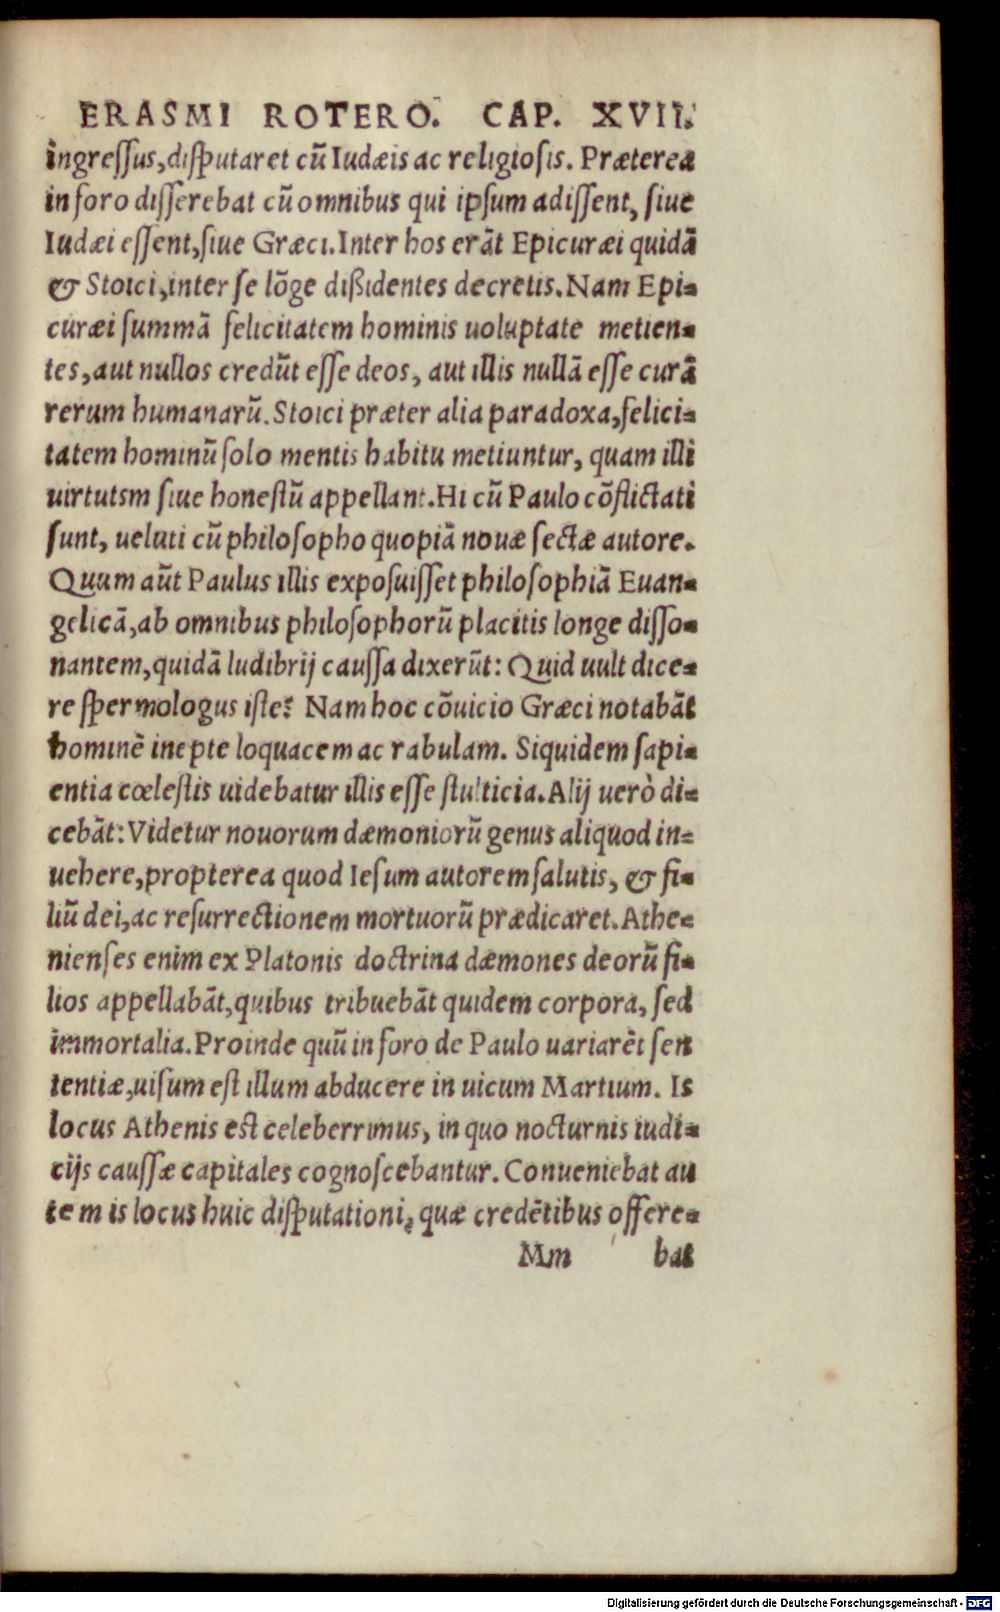 ERASMI ROTERO. CAP. XVII.
ingressus, disputaret cũ Iudæis ac religiosis. Præterea
in foro disserebat cũ omnibus qui ipsum adissent, siue
Iudæi essent, siue Græci. Inter hos erãt Epicuræi quidã
& Stoici, inter se lõge dißidentes decretis. Nam Epi-
curæi summã felicitatem hominis uoluptate metien-
tes, aut nullos credũt esse deos, aut illis nullã esse curã
rerum humanarũ. Stoici præter alia paradoxa, felici-
tatem hominũ solo mentis habitu metiuntur, quam illi
uirtutsm siue honestũ appellant. Hi cũ Paulo cõflictati
sunt, ueluti cũ philosopho quopiã nouæ sectæ autore.
Quum aũt Paulus illis exposuisset philosophiã Euan-
gelicã, ab omnibus philosophorũ placitis longe disso-
nantem, quidã ludibrij caussa dixerũt: Quid uult dice-
re spermologus iste? Nam hoc cõuicio Græci notabãt
hominẽ inepte loquacem ac rabulam. Siquidem sapi-
entia cœlestis uidebatur illis esse stulticia. Alij uerò di-
cebãt: Videtur nouorum dæmoniorũ genus aliquod in-
uehere, propterea quod Iesum autorem salutis, & fi-
liũ dei, ac resurrectionem mortuorũ prædicaret. Athe-
nienses enim ex Platonis doctrina dæmones deorũ fi-
lios appellabãt, quibus tribuebãt quidem corpora, sed
immortalia. Proinde quũ in foro de Paulo uariarẽt sen
tentiæ, uisum est illum abducere in uicum Martium. Is
locus Athenis est celeberrimus, in quo nocturnis iudi-
cijs caussæ capitales cognoscebantur. Conueniebat au
tem is locus huic disputationi, quæ credẽtibus offere-
Mm bat
Digitalisierung gefördert durch die Deutsche Forschungsgemeinschaft - DFG